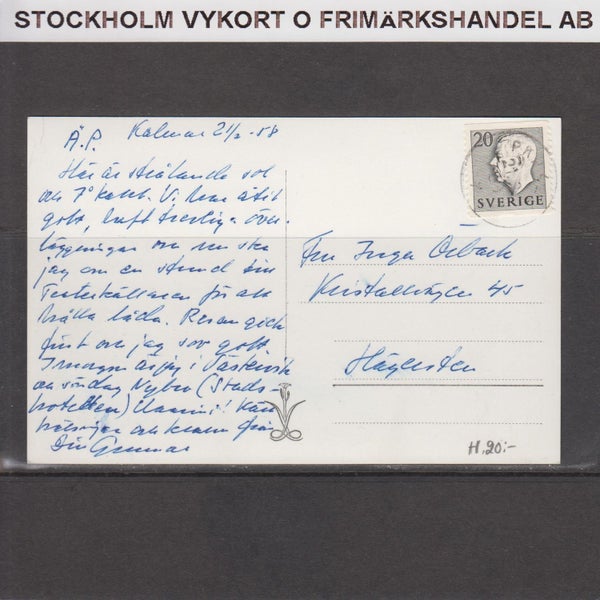 STOCKHOLM VYKORT O FRIMÄRKSHANDEL AB
Kalmar 21/2 - 58
Ä.P.
Här är strålande sol
och 7° kallt. Vi har ätit
gott, haft trevliga över-
läggningar och nu ska
jag om en stund till
Teaterkällaren för att
hålla låda. Resan gick
fint och jag sov gott
I morgon är jag i Västervik
och söndag Nybro (Stads-
hotellen)
hälsningar och kramar från
Din Gunnar
20
SVERIGE
Fru Inga Örback
Kristallvägen 45
Hägersten
H.20:-